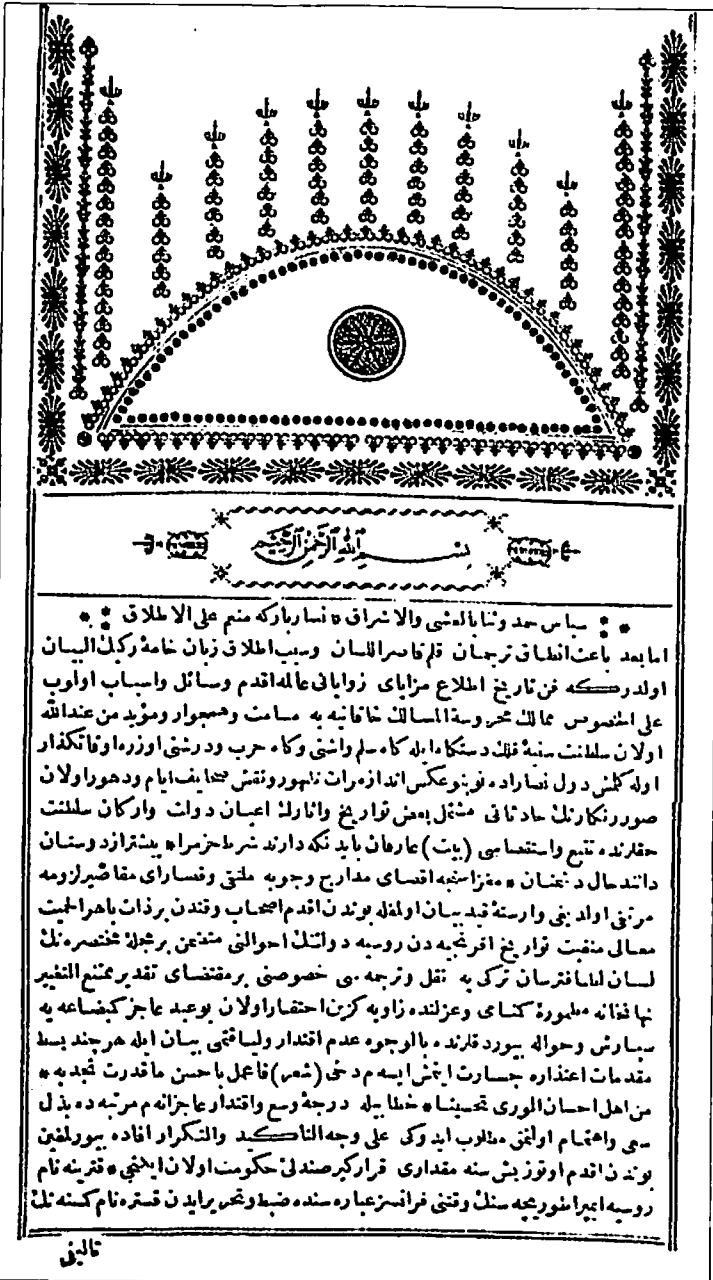 بسم الله الرحمن الرحيم
سپاس حمد وثنا بالعشی والاشراق نثار بارکه منعم علی الاطلاق
اما بعد باعث انطاق ترجمان قلم قاصر اللسان وسبب اطلاق زبان خامهٔ رکیك البیان
اولدرکه فن تاریخ اطلاع مزایای زوایای عالمه اقدم وسائل واسباب اولوب
علی الخصوص ممالك محروسة المسالك خاقانیه یه مسامت وهمجوار ومؤید من عندالله
اولان سلطنت سنیهٔ فلك دستکاه ایله کاه سلم واشتی وکاه حرب ودرشتی اوزره اوقاتکذار
اوله کلمش دول نصاراده نوبنو عکس اندازۀ مرات ظهور ونقش صحایف ایام ودهور اولان
صور رنکارنك حادثاتی مشتمل بعض تواریخ واثارك اعیان دولت وارکان سلطنت
حقلرنده تتبع واستقصاسی (بیت) عارفان باید نکه دارند شرط حزم را * بیشتر از دوستان
دانند حال دشمنان * مغزاسنجه اقصای مدارج وجوبه ملتق وقصارای مقاصیر لزومه
مرتقی اولدیغی وارستهٔ قید بیان اولمغله بوندن اقدم اصحاب وقتدن بر ذات باهر الحمیت
معالی منقبت تواریخ افرنجیه دن روسیه دولتنك احوالنی متضمن بر مجلهٔ مختصره نك
لسان لطافترسان ترکی یه نقل وترجمه سی خصوصنی بر مقتضای تقدیر ممتنع التغییر
نهانخانه مطمورۀ کمنامی وعزلتده زاویه کزین احتقار اولان بو عبد عاجز کم بضاعه یه
سپارش وحواله بیوردقلرنده بالوجوه عدم اقتدار ولیاقتمی بیان ایله هر چند بسط
مقدمات اعتذاره جسارت ایتمش ایسه م دخی (شعر) فاعمل باحسن ما قدرت تجد به *
من اهل احسان الوری تحسینا * خطابیله درجهٔ وسع واقتدار عاجزانه م مرتبه ده بذل
سعی واهتمام اولنمق مطلوب ایدوکی علی وجه التأکید والتکرار افاده بیورلمغین
بوندن اقدم اوتوز بش سنه مقداری قرارکیر صندلیٔ حکومت اولان ایکنجی * قترینه نام
روسیه ایمپراطوریچه سنك وقتنی فرانسز عباره سنده ضبط وتحریر ایدن قستره نام کسنه نك
تالیفی